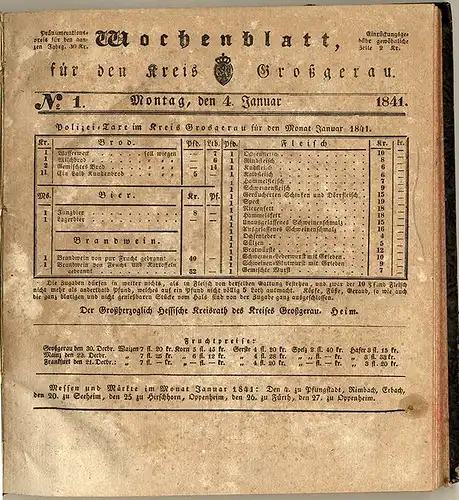 Pränumerations-
preis für den gan-
zen Jahrg. 30 Kr.
Wochenblatt,
Einrückungsge-
bühr gewöhnliche
Zeile 2 Kr.
für den Kreis Großgerau.
№ 1. Montag, den 4. Januar 1841.
Polizei-Taxe im Kreis Grosgerau für den Monat Januar 1841.
Kr. Brod. Pfd. Lth.
1 Wasserweck soll wiegen — 7
1 Milchbrod — 6
2 Gemischtes Brod — 14
11 Ein Laib Kundenbrod 5 —
Ms. Bier. Kr. Pf.
1 Jungbier 8 —
1 Lagerbier
Brandwein.
1 Brandwein von pur Frucht gebrannt 40 —
1 Brandwein von Frucht und Kartoffeln
gebrannt 32 —
Pfd. Fleisch Kr. hr.
1 Ochsenfleisch 10 —
1 Rindfleisch 8 —
1 Kuhfleisch
1 Kalbfleisch
1 Hammelfleisch 7
1 Schweinenfleisch 9
1 Geräucherten Schinken und Dörrfleisch 15
1 Speck 19
1 Nierenfett 18
1 Hammelsfett 18
1 Unausgelassenes Schweinenschmalz 16
1 Ausgelassenes Schweinenschmalz 16
1 Ochsenleber 4
1 Sülzen 5
1 Bratwürste 12
1 Schweinen-Leberwurst mit Grieben 9
1 Schweinen-Blutwurst mit Grieben 9
1 Gemischte Wurst 7
Die Zugaben dürfen in weiter nichts, als in Fleisch von derselben Gattung bestehen, und zwar der 10 Pfund Fleisch
nicht mehr als anderthalb Pfund, welches auf ein Pfund nicht völlig 5 Loth ausmacht. Köpfe, Füße, Geraub, so wie auch
die ganz blutigen und nicht genießbaren Stücke vom Hals sind von der Zugabe ganz ausgeschlossen.
Der Großherzoglich Hessische Kreisrath des Kreises Großgerau. Heim.
Fruchtpreise:
Großgerau den 30. Decbr. Waizen 7 fl. 20 kr. Korn 5 fl. 45 kr. Gerste 4 fl. 20 kr. Spelz 2 fl. 40 kr. Hafer 3 fl. 15 kr.
Mainz den 22. Decbr. „ 7 fl. 25 kr. „ 6 fl. 12 kr. „ 4 fl. 28 kr. „ — fl. — kr. „ 3 fl. 33 kr.
Frankfurt den 21. Decbr.: „ 7 fl. — kr. „ — fl. — kr. „ 4 fl. 20 kr. „ — fl. — kr. „ 3 fl. 20 kr.
Messen und Märkte im Monat Januar 1841: Den 4. zu Pfungstadt, Rimbach, Erbach,
den 20. zu Seeheim, den 25 zu Hirschhorn, Oppenheim, den 26. zu Fürth, den 27. zu Oppenheim.